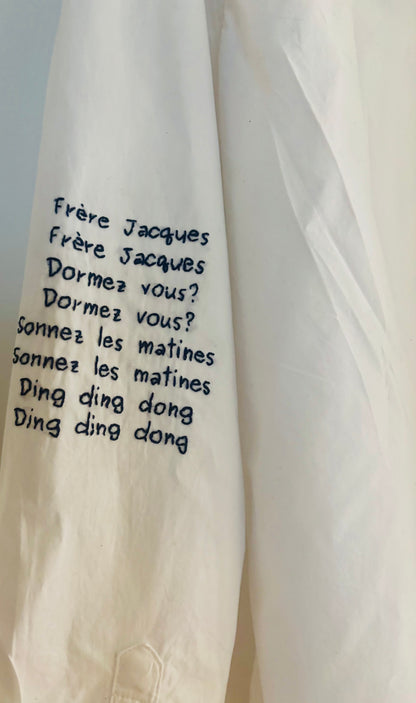 Frère Jacques
Frère Jacques
Dormez vous?
Dormez vous?
Sonnez les matines
Sonnez les matines
Ding ding dong
Ding ding dong